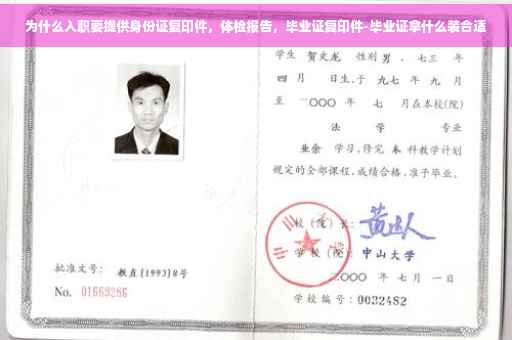 为什么入职要提供身份证复印件，体检报告，毕业证复印件-毕业证拿什么装合适
学生 贺文龙 性别 男 、七三 年
四 月 日生，于 九七 年 九 月
至 二〇〇〇 年 七 月在本校(院)
法 学 专业
业余 学习，修完 本 科教学计划
规定的全部课程，成绩合格，准予毕业。
校（院）长：
学 校（院） 中山大学
批准文号： 教直[1993]8号
二〇〇〇 年 七 月 一 日
No. 01669286
学校编号：0032482